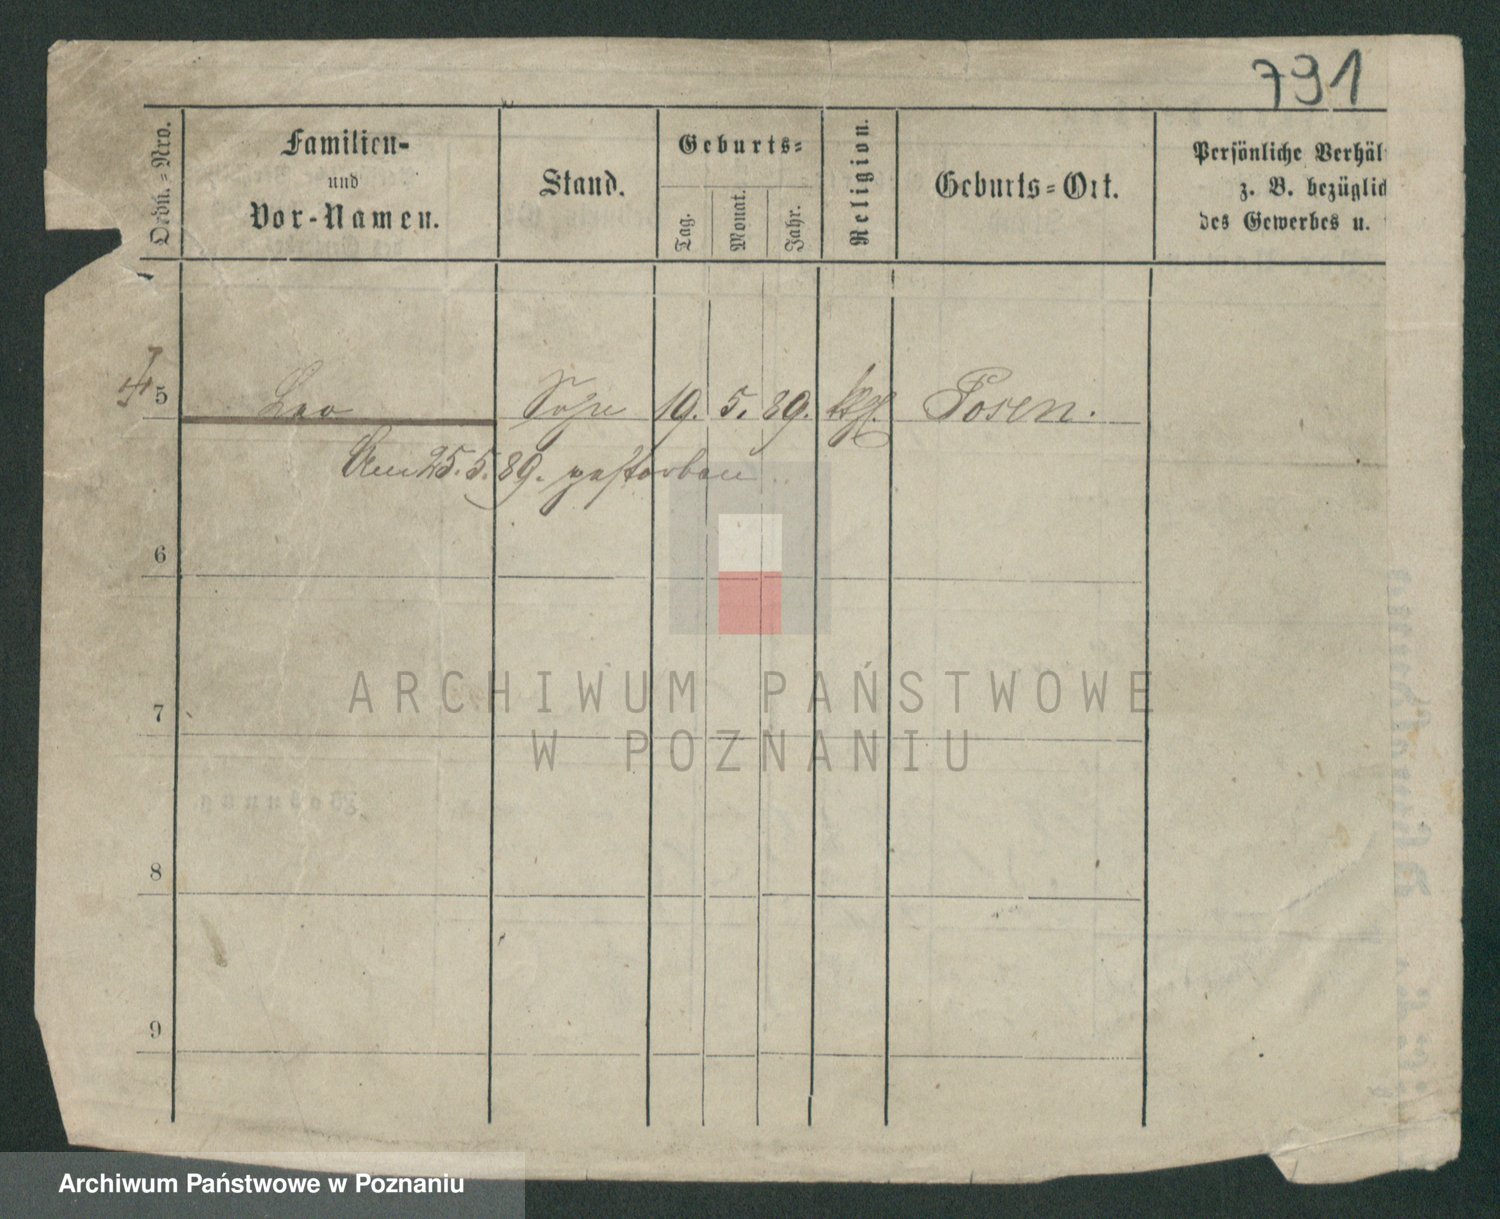 791
Ordn.=Nro.
Familien-
und
Vor-Namen.
Stand.
Geburts=
Tag.
Monat.
Jahr.
Religion.
Geburts=Ort.
Persönliche Verhäl
z. B. bezüglic
des Gewerbes u.
5 Leo Sohn 19. 5. 89. kath. Posen.
Am 25.5.89. gestorben
6
7
8
9
ARCHIWUM PAŃSTWOWE
W POZNANIU
Archiwum Państwowe w Poznaniu